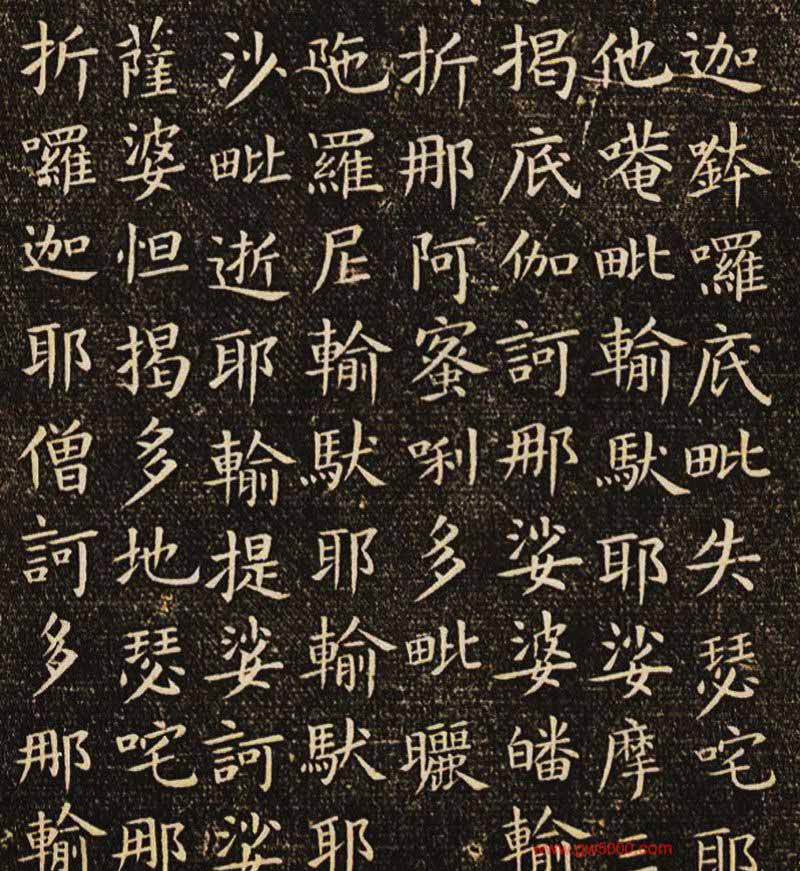 迦鉢囉底毗失瑟咤耶
他唵毗輸馱耶娑摩三
揭底伽訶那娑婆皤輸
折那阿蜜唎多毗曬
陁羅尼輸馱耶輸馱耶
沙毗逝耶輸提娑訶娑
薩婆怛揭多地瑟咤那
折囉迦耶僧訶多那輸
www.gw5000.com